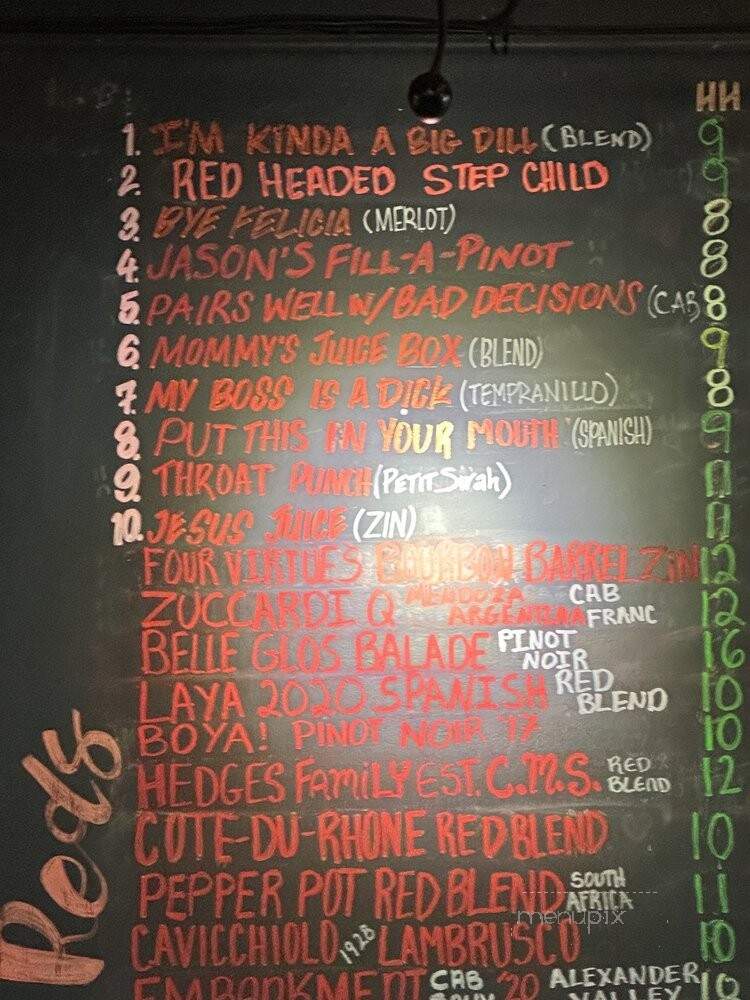 HH
1. I'M KINDA A BIG DILL (BLEND) 9
2. RED HEADED STEP CHILD 9
3. BYE FELICIA (MERLOT) 8
4. JASON'S FILL-A-PINOT 8
5. PAIRS WELL W/BAD DECISIONS (CAB) 8
6. MOMMY'S JUICE BOX (BLEND) 9
7. MY BOSS IS A DICK (TEMPRANILLO) 8
8. PUT THIS IN YOUR MOUTH (SPANISH) 9
9. THROAT PUNCH (PETIT Sirah) 11
10. JESUS JUICE (ZIN) 11
FOUR VIRTUES BOURBON BARREL ZIN 12
ZUCCARDI Q MENDOZA ARGENTINA CAB FRANC 12
BELLE GLOS BALADE PINOT NOIR 16
LAYA 2020 SPANISH RED BLEND 10
BOYA! PINOT NOIR '17 10
HEDGES FAMILY EST. C.M.S. RED BLEND 12
COTE-DU-RHONE RED BLEND 10
PEPPER POT RED BLEND SOUTH AFRICA 11
CAVICCHIOLO 1928 LAMBRUSCO 10
EMBANKMENT CAB SAUV '20 ALEXANDER VALLEY 10
Reds
menupix